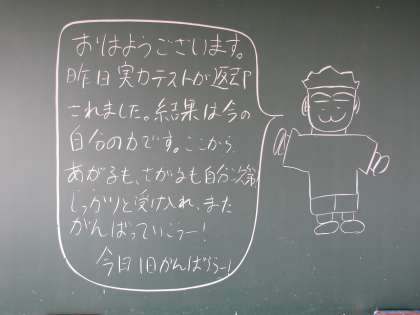 おはようございます。
昨日実力テストが返却
されました。結果は今の
自分の力です。ここから
あがるも、さがるも自分次第
しっかりと受け入れ、また
がんばっていこうー!
今日1日がんばろうー!